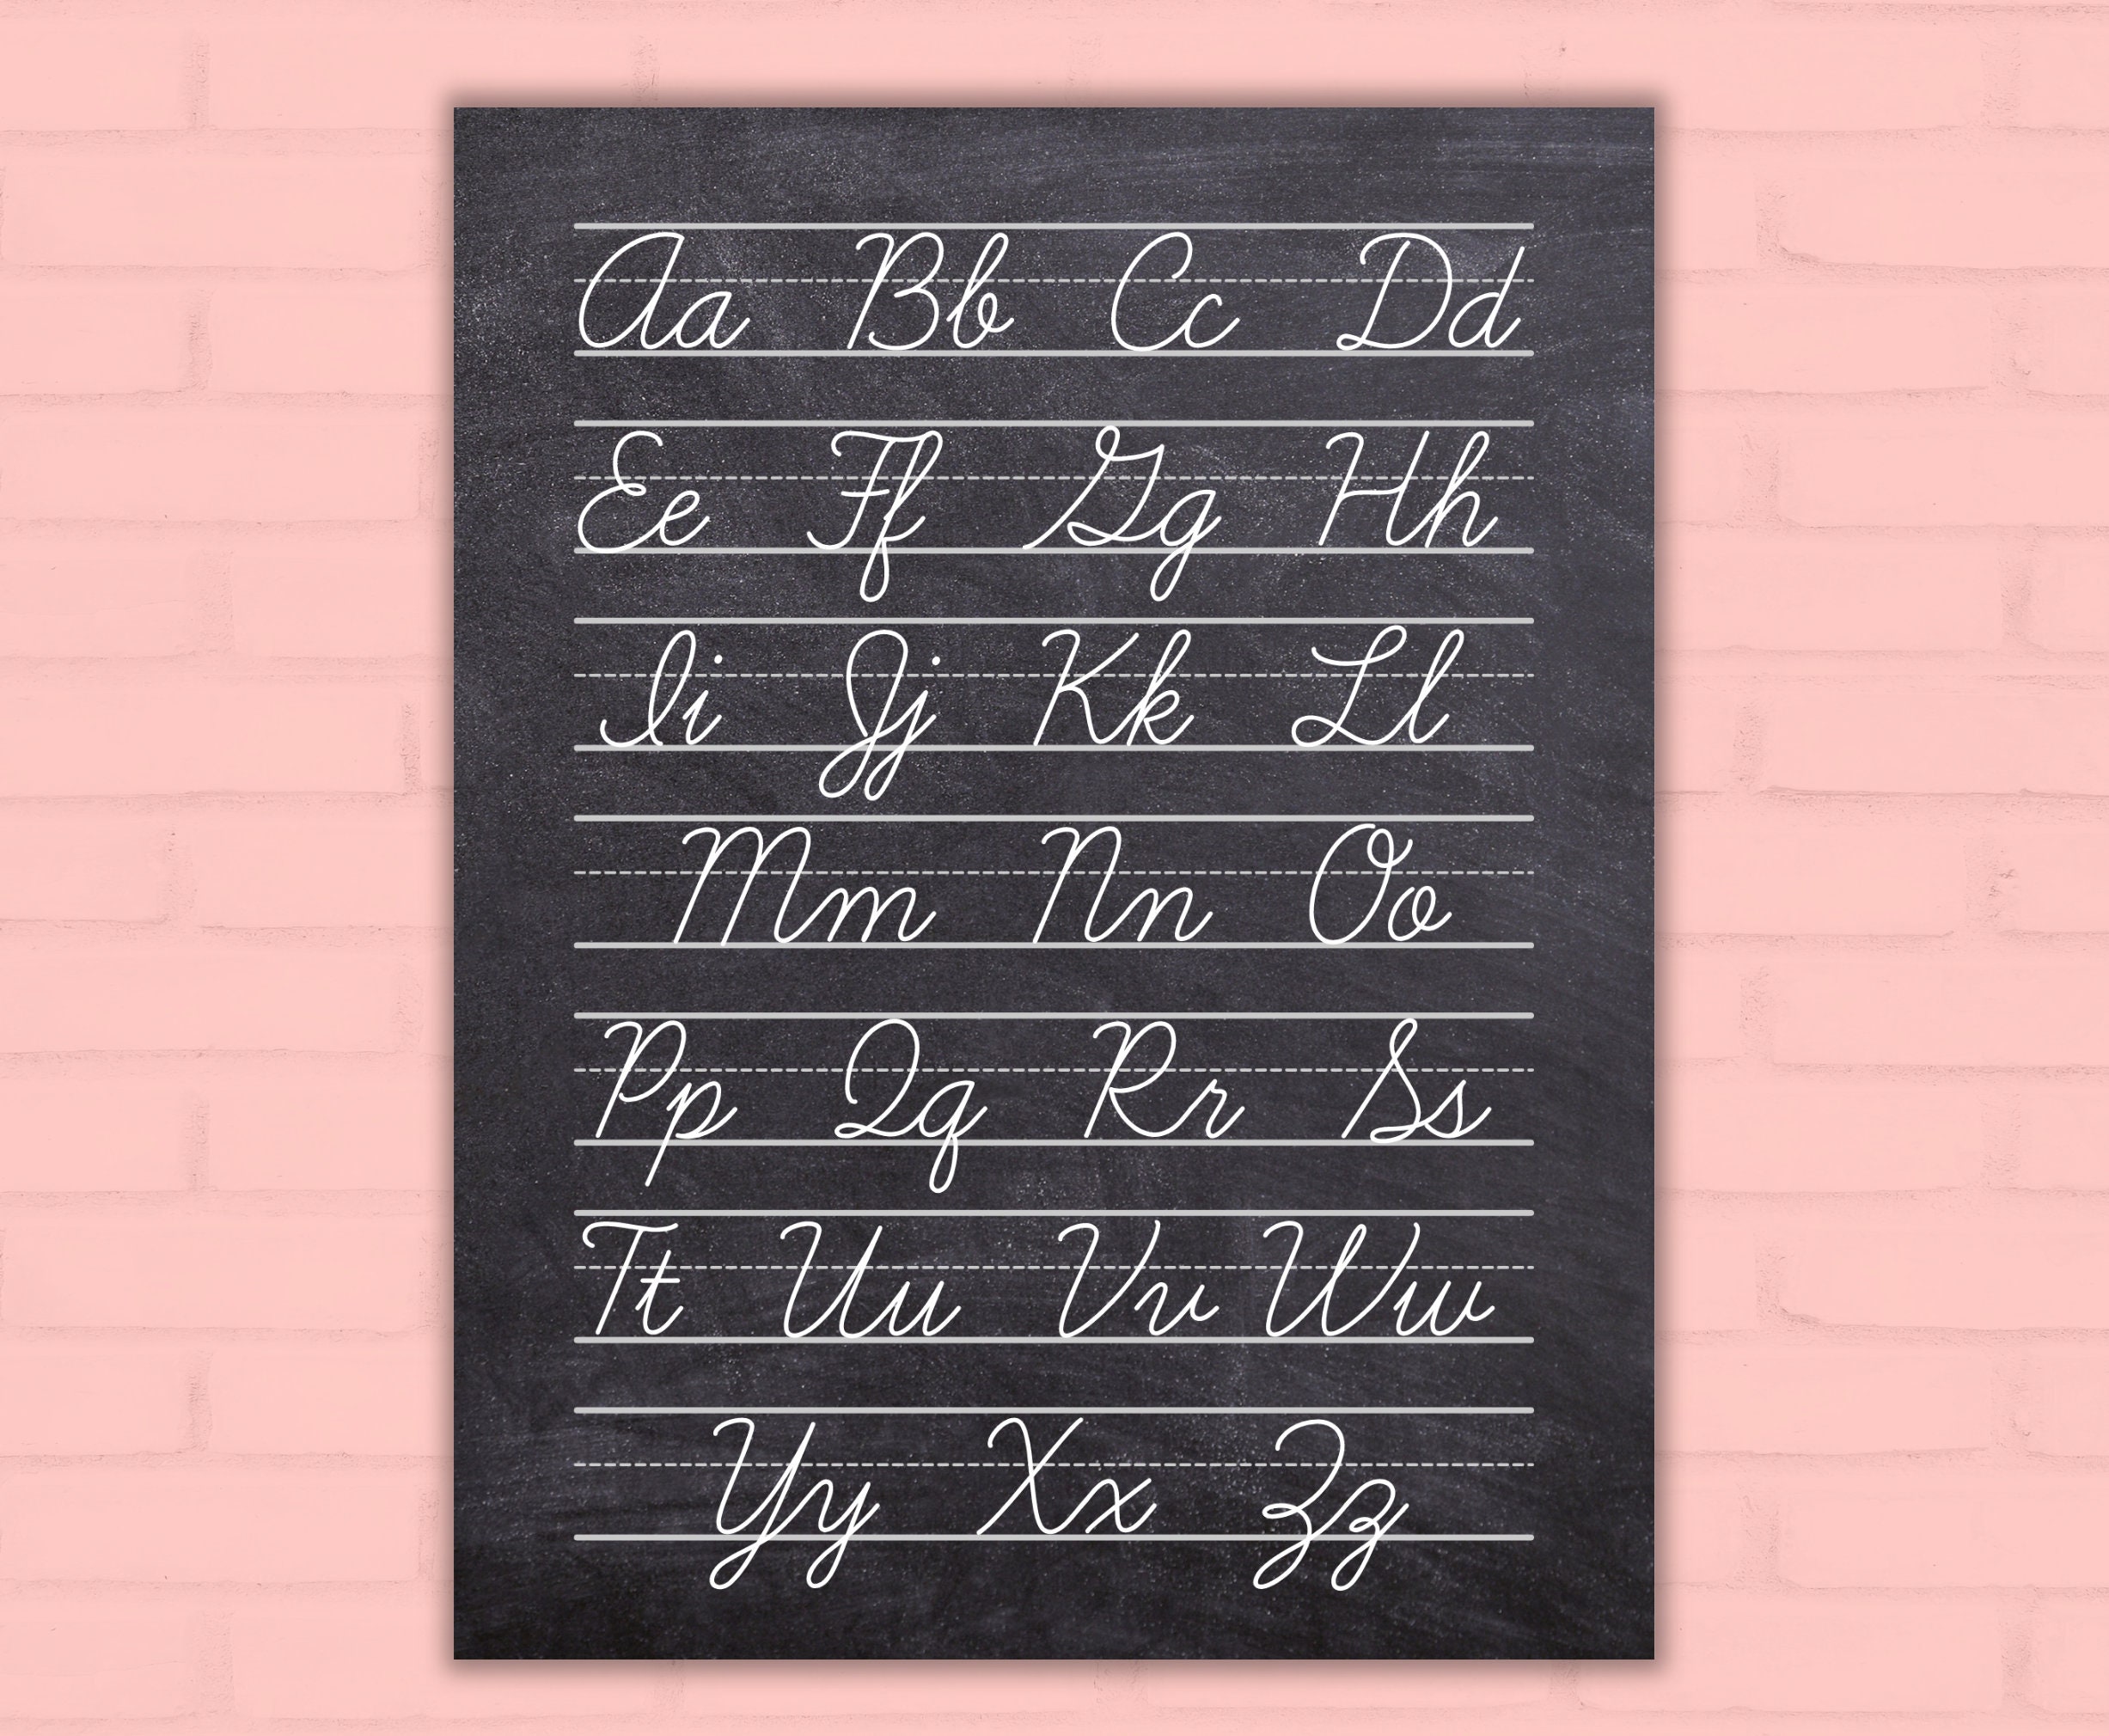 Aa Bb Cc Dd
Ee Ff Gg Hh
Ii Jj Kk Ll
Mm Nn Oo
Pp Qq Rr Ss
Tt Uu Vv Ww
Yy Xx Zz